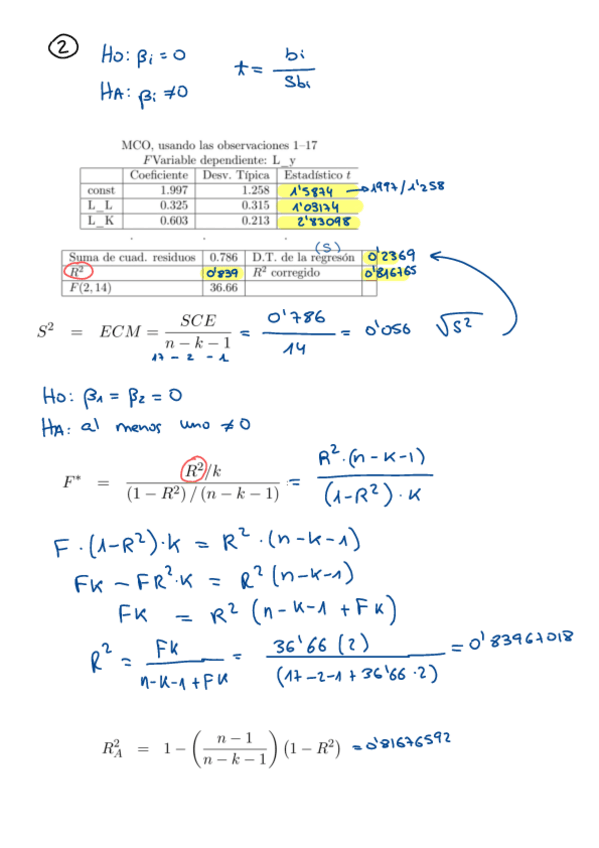 ② Ho: βi = 0 t = bi / Sbi
HA: βi ≠ 0
MCO, usando las observaciones 1–17
FVariable dependiente: L_y
Coeficiente Desv. Típica Estadístico t
const 1.997 1.258 1'5874 → 1997/1'258
L_L 0.325 0.315 1'03174
L_K 0.603 0.213 2'83098
(S)
Suma de cuad. residuos 0.786 D.T. de la regresón 0'2369
R² 0'839 R² corregido 0'816765
F(2, 14) 36.66
S² = ECM = SCE / n − k − 1 = 0'786 / 14 = 0'056 √S²
17 - 2 - 1
Ho: β1 = β2 = 0
HA: al menos uno ≠ 0
F* = R²/k / (1 − R²) / (n − k − 1) = R²·(n-k-1) / (1-R²)·k
F·(1-R²)·k = R²·(n-k-1)
Fk - FR²·k = R²(n-k-1)
Fk = R²(n-k-1+Fk)
R² = Fk / n-k-1+Fk = 36'66(2) / (17-2-1+36'66·2) = 0'83967018
R²A = 1 − (n − 1 / n − k − 1) (1 − R²) = 0'81676592